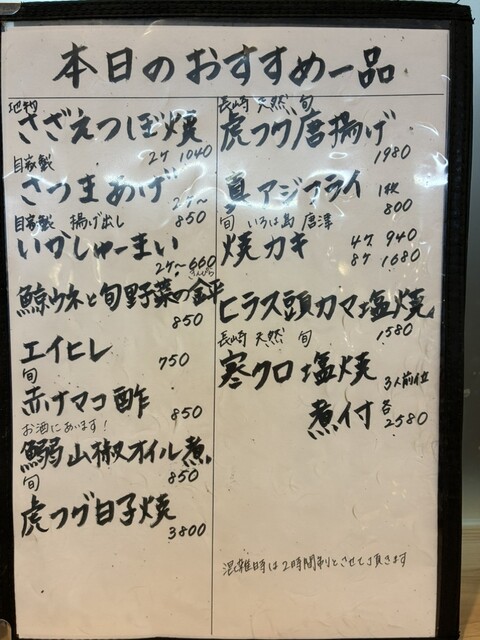 本日のおすすめ一品
地物
さざえつぼ焼
2ケ 1040
自家製
さつまあげ
2ケ〜
850
自家製 揚げ出し
いかしゅーまい
2ケ〜 660
きんぴら
鯨ウネと旬野菜の金平
850
エイヒレ
750
旬
赤ナマコ酢
850
お酒にあいます!
鰯山椒オイル煮
850
旬
虎フグ白子焼
3800
長崎 天然 旬
虎フグ唐揚げ
1980
真アジフライ
1枚
800
旬 いろは島 唐津
焼カキ
4ケ 940
8ケ 1680
ヒラス頭カマ塩焼
1580
長崎 天然 旬
寒クロ塩焼
3人前位
煮付 各
2580
混雑時は2時間制とさせて頂きます